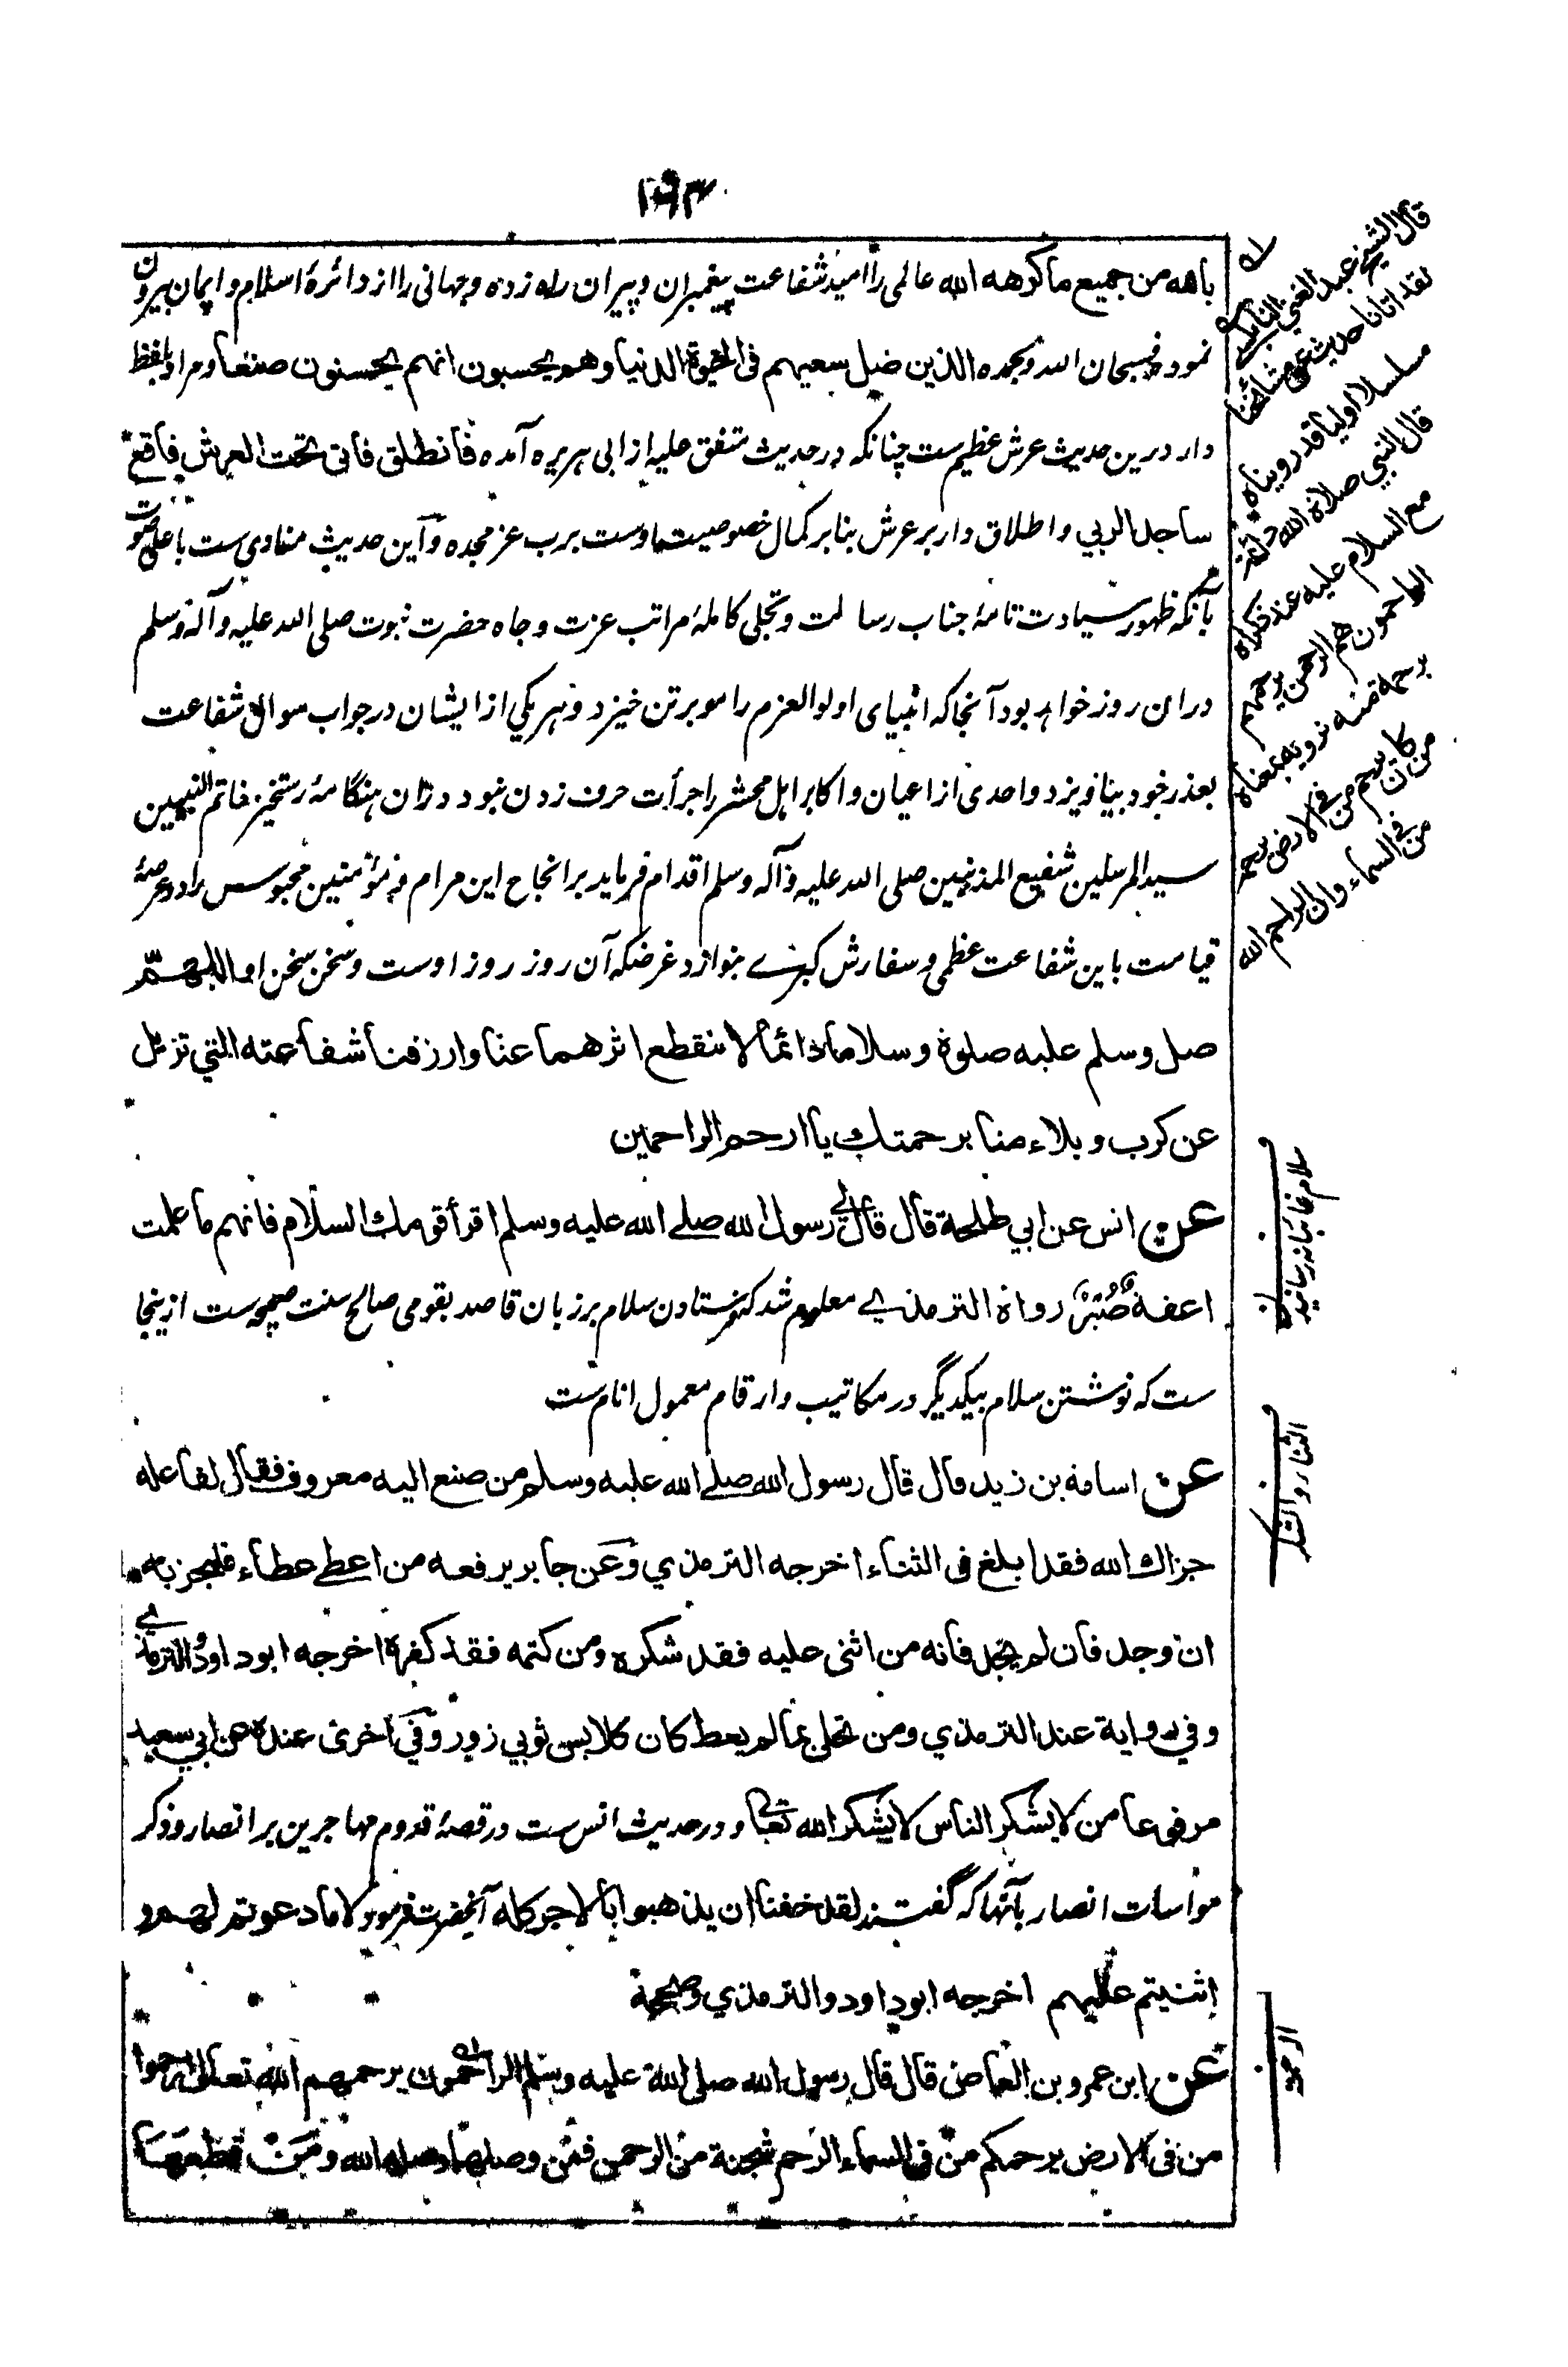 ۱۹۳
بالله من جميع ما كرهه الله عالمی را امید شفاعت پیغمبران و پیران راه زده و جهانی را از دائرۀ اسلام و ایمان بیرون
نموده فسبحان الله وبحمده الذين ضل سعيهم فى الحيوة الدنيا وهم يحسبون انهم يحسنون صنعا و مراد بلفظ
دار درین حدیث عرش عظیم ست چنانکه در حدیث متفق علیه از ابی هریره آمده فانطلق فاتى تحت العرش فاقع
ساجدا لربي و اطلاق دار بر عرش بنا بر کمال خصوصیت اوست برب عز مجده و این حدیث منادی ست باعلی صوت
بآنکه ظهور سیادت تامۀ جناب رسالت و تجلی کاملۀ مراتب عزت و جاه حضرت نبوت صلی الله علیه و آله وسلم
در ان روز خواهد بود آنجا که انبیای اولوالعزم را مو بر تن خیزد و هر یکی از ایشان در جواب سوال شفاعت
بعذر خود بیاویزد و احدی از اعیان و اکابر اهل محشر را جرأت حرف زدن نبود در ان هنگامۀ رستخیز خاتم النبیین
سید المرسلین شفیع المذنبین صلی الله علیه و آله وسلم اقدام فرماید بر انجاح این مرام و مؤمنین محبوس را در عرصۀ
قیامت باین شفاعت عظمی و سفارش کبرے بنوازد غرضکه آن روز روز اوست و سخن سخن او اللهم
صل وسلم عليه صلوة وسلاما دائما لا ينقطع اثرهما عنا وارزقنا شفاعته التي تزيل
عن كرب وبلاء منا برحمتك يا ارحم الراحمين
عن انس عن ابي طلحة قال قال لي رسول الله صلے الله عليه وسلم اقرأ قومك السلام فانهم ما علمت
اعفة صُبُرٌ رواه الترمذي معلوم شد که فرستادن سلام بر زبان قاصد بقومی صالح سنت صحیحه ست ازینجا
ست که نوشتن سلام بیکدیگر در مکاتیب و ارقام معمول انام ست
عن اسامة بن زيد قال قال رسول الله صلے الله عليه وسلم من صنع اليه معروف فقال لفاعله
جزاك الله فقد ابلغ فى الثناء اخرجه الترمذي وعن جابر يرفعه من اعطے عطاء فليجز به
ان وجد فان لم يجد فانه من اثنى عليه فقد شكره ومن كتمه فقد كفره اخرجه ابو داود والترمذي
وفي رواية عند الترمذي ومن تحلى بما لم يعط كان كلابس ثوبي زور وفي اخرى عنده عن ابي سعيد
مرفوعا من لا يشكر الناس لا يشكر الله تعالى و در حدیث انس ست در قصۀ قدوم مهاجرین بر انصار و ذکر
مواسات انصار بآنها که گفتند لقد خفنا ان يذهبوا بالاجر كله آنحضرت فرمود لا ما دعوتم لهم و
اثنيتم عليهم اخرجه ابو داود والترمذي وصححه
عن ابن عمرو بن العاص قال قال رسول الله صلى الله عليه وسلم الراحمون يرحمهم الله تعالى ارحموا
من فى الارض يرحمكم من فى السماء الرحم شجنة من الرحمن فمن وصلها وصله الله ومن قطعها
قال الشيخ عبد الغني النابلسي
لقد اتانا حديث عن مشائخنا
مسلسلا اوليا قد رويناه
قال النبي صلاة الله دائمة
مع السلام عليه عند ذكراه
الراحمون هم الرحمن يرحمهم
برحمة منه نرويه بمعناه
من كان يرحم من فى الارض يرحمه
من فى السماء وان الراحم الله
سلام غائبانه رسانیدن
الثناء والشكر
الرحمة